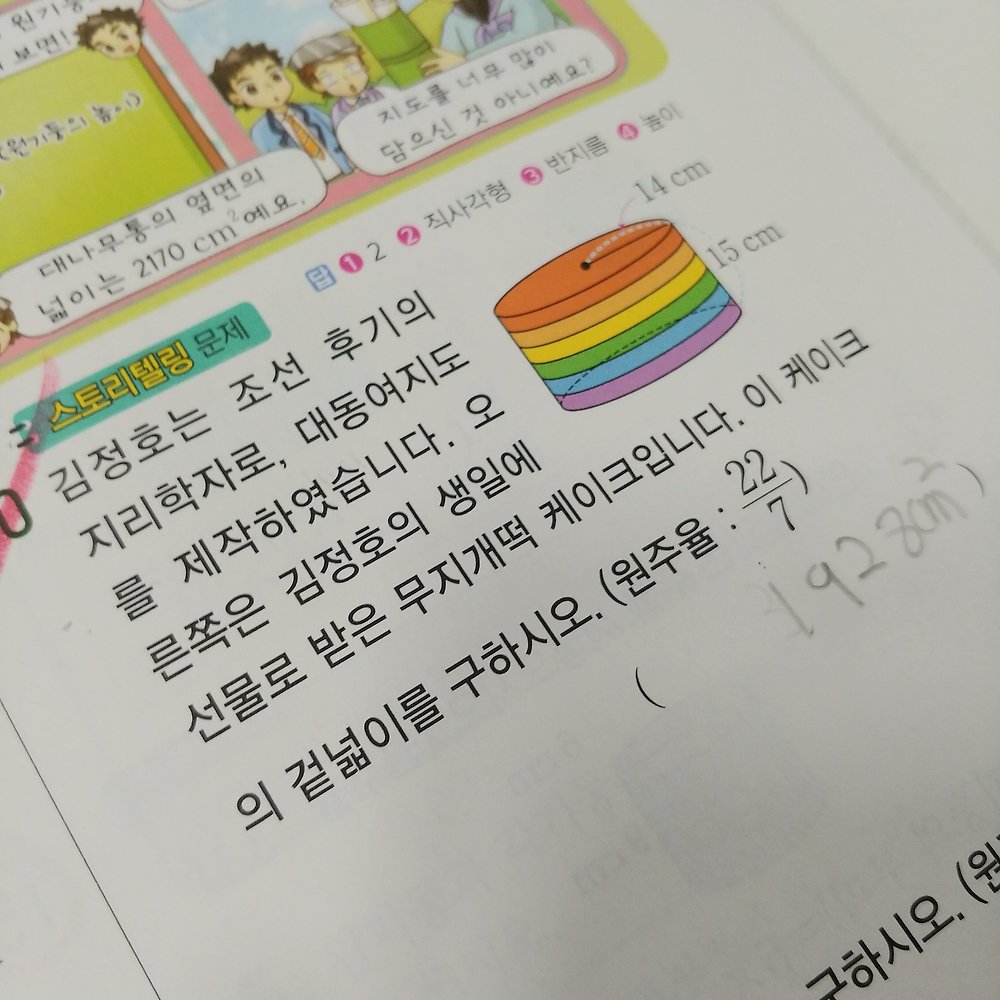 원기둥
보면!
(원기둥의 높이)
지도를 너무 많이
담으신 것 아니에요?
대나무통의 옆면의
넓이는 2170 cm²예요.
답 ❶ 2 ❷ 직사각형 ❸ 반지름 ❹ 높이
14 cm
15 cm
스토리텔링 문제
김정호는 조선 후기의
지리학자로, 대동여지도
를 제작하였습니다. 오
른쪽은 김정호의 생일에
선물로 받은 무지개떡 케이크입니다. 이 케이크
의 겉넓이를 구하시오. (원주율 : 22/7)
( )
구하시오. (원